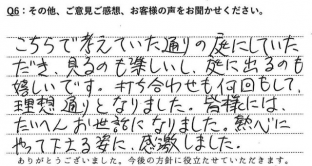 Q6：その他、ご意見ご感想、お客様の声をお聞かせください。
こちらで考えていた通りの庭にしていた
だき、見るのも楽しいし、庭に出るのも
嬉しいです。打ち合わせも何回もして、
理想通りとなりました。皆様には、
たいへんお世話になりました。熱心に
やって下さる姿に、感激しました。
ありがとうございました。今後の方針に役立たせていただきます。